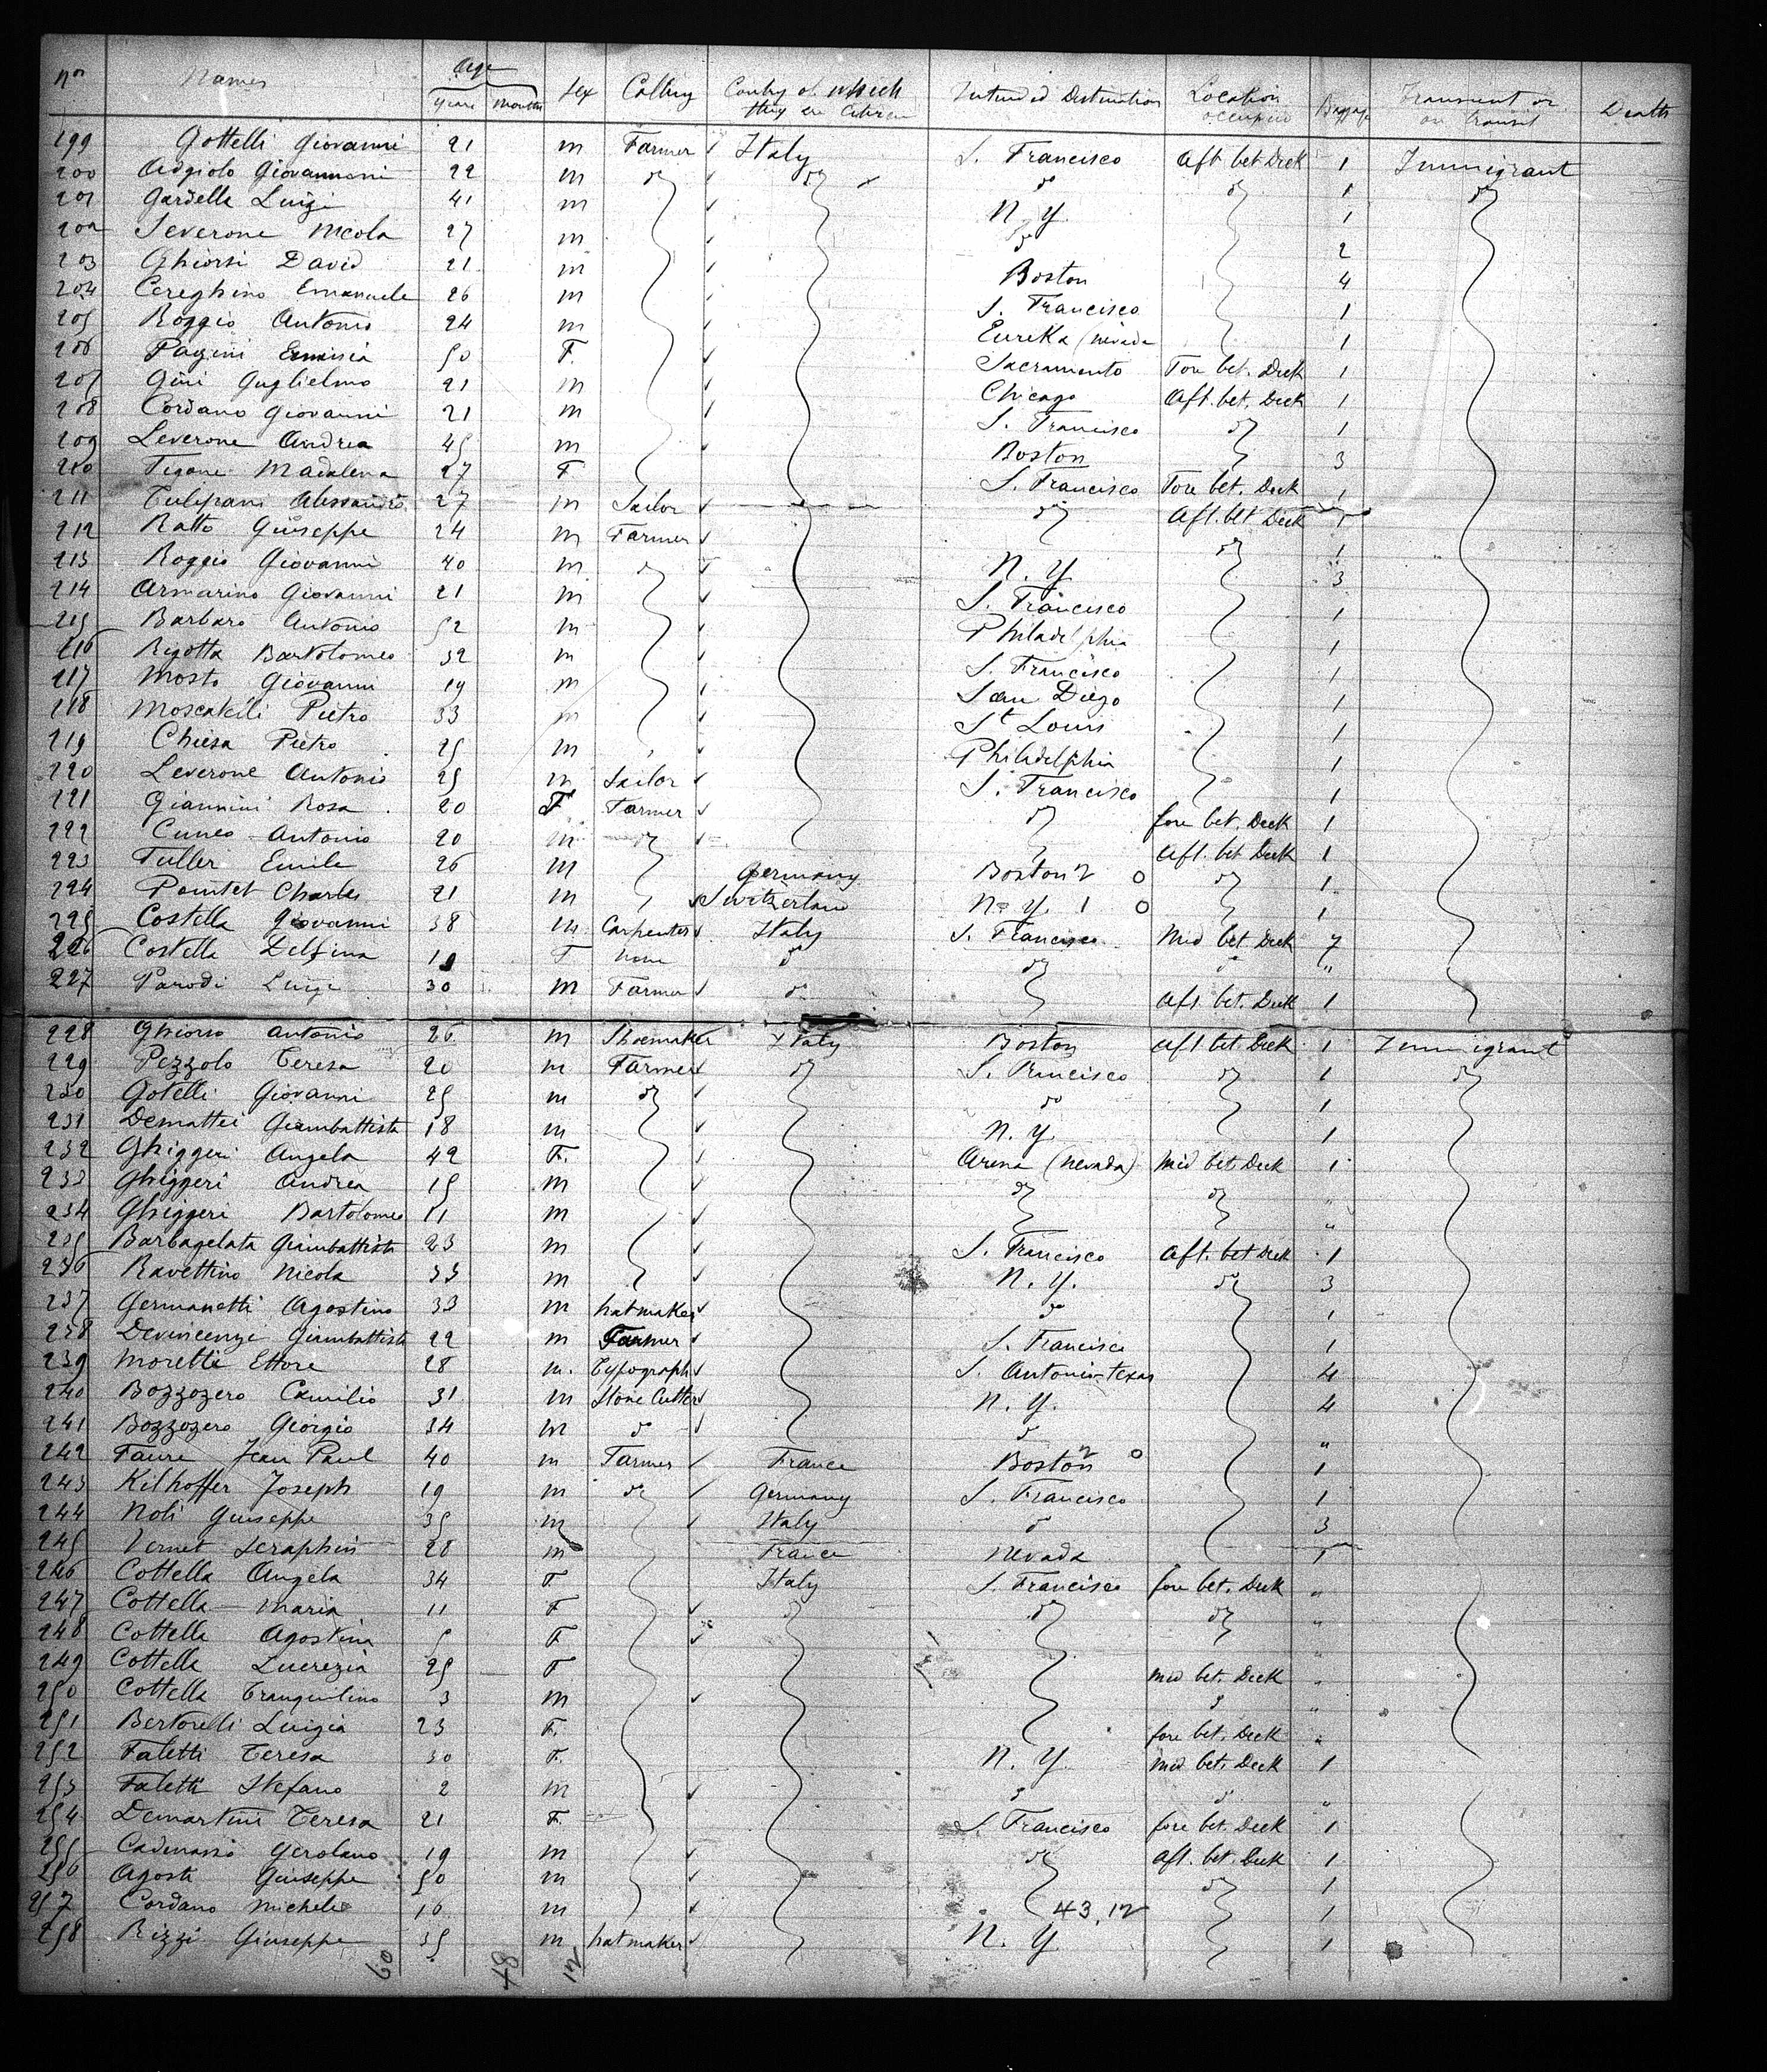 No Names Age Sex Calling Contry of which Intended Destination Location Baggage Transient or Death
years months they are Citizen occupied on transit
199 Gottelli Giovanni 21 m Farmer Italy S. Francisco Aft bet Deck 1 Immigrant
200 Giovannoni 22 m do do do do 1 do
201 Gardella Luigi 41 m N. Y. 1
202 Severone Nicola 27 m do 2
203 Ghiorsi David 21 m Boston 4
204 Cereghino Emanuele 26 m S. Francisco 1
205 Roggio Antonio 24 m Eureka (nevada 1
206 Pagini 50 F. Sacramento Fore bet. Deck 1
207 Gini Guglielmo 21 m Chicago Aft. bet. Deck 1
208 Cordano Giovanni 21 m S. Francisco do 1
209 Leverone Andrea 45 m Boston 3
210 Madalena 27 F S. Francisco Fore bet. Deck 1
211 Tulipani Alessandro 27 m Sailor do Aft. bet Deck 1
212 Ratto Giuseppe 24 m Farmer do 1
213 Roggio Giovanni 40 m do N. Y. 3
214 Armarino Giovanni 21 m S. Francisco 1
215 Barbaro Antonio 52 m Philadelphia 1
216 Rigotta Bartolomeo 32 m S. Francisco 1
217 Mosto Giovanni 19 m San Diego 1
218 Pietro 33 m St Louis 1
219 Chiesa Pietro 25 m Philadelphia 1
220 Leverone Antonio 25 m Sailor S. Francisco 1
221 Giannini Rosa 20 F Farmer do fore bet. Deck 1
222 Cuneo Antonio 20 m do Aft. bet Deck 1
223 Fuller Emile 26 m Germany Boston 2 0 do 1
224 Pointet Charles 21 m Switzerland N. Y. 1 0 1
225 Costella Giovanni 38 m Carpenter Italy S. Francisco Mid bet. Deck 7
226 Costella Delfina F none do do do "
227 Parodi Luigi 30 m Farmer do Aft bet. Deck 1
228 Ghiorso Antonio 26 m Shoemaker Italy Boston Aft bet. Deck 1 Immigrant
229 Pezzolo Teresa 20 m Farmer do S. Francisco do 1 do
230 Gotelli Giovanni 25 m do do 1
231 Demattei Giambattista 18 m N. Y. 1
232 Ghiggeri Angela 42 F. Arena (nevada) Mid bet Deck 1
233 Ghiggeri Andrea 15 m do do "
234 Ghiggeri Bartolomeo 11 m "
235 Barbagelata Giambattista 23 m S. Francisco Aft. bet Deck 1
236 Ravettino Nicola 33 m N. Y. do 3
237 Germanetti Agostino 33 m hatmaker do 1
238 Devincenzi Giambattista 22 m Farmer S. Francisco 1
239 Moretti Ettore 28 m. Typograph S. Antonio-Texas 4
240 Bozzozero Camilio 31 m Stone Cutter N. Y. 4
241 Bozzozero Giorgio 34 m do do "
242 Faure Jean Paul 40 m Farmer France Boston 2 0 1
243 Kilhoffer Joseph 19 m do Germany S. Francisco 1
244 Noli Giuseppe 35 m Italy do 3
245 Vernet Seraphin 28 m France Nevada 1
246 Cottella Angela 34 F. Italy S. Francisco fore bet. Deck "
247 Cottella Maria 11 F do do do "
248 Cottella Agostina 5 F "
249 Cottella Lucrezia 25 F mid bet. Deck "
250 Cottella Tranquilino 3 m do "
251 Bertorelli Luigia 23 F. fore bet. Deck "
252 Faletti Teresa 30 F. N. Y. Mid bet. Deck 1
253 Faletti Stefano 2 m do do "
254 Demartini Teresa 21 F. S. Francisco fore bet. Deck 1
255 Gerolano 19 m do Aft. bet. Deck 1
256 Agosti Giuseppe 50 m do 1
257 Cordano Michele 16 m 43,12 1
258 Rizzi Giuseppe 35 m hatmaker N. Y. 1
60 48 12